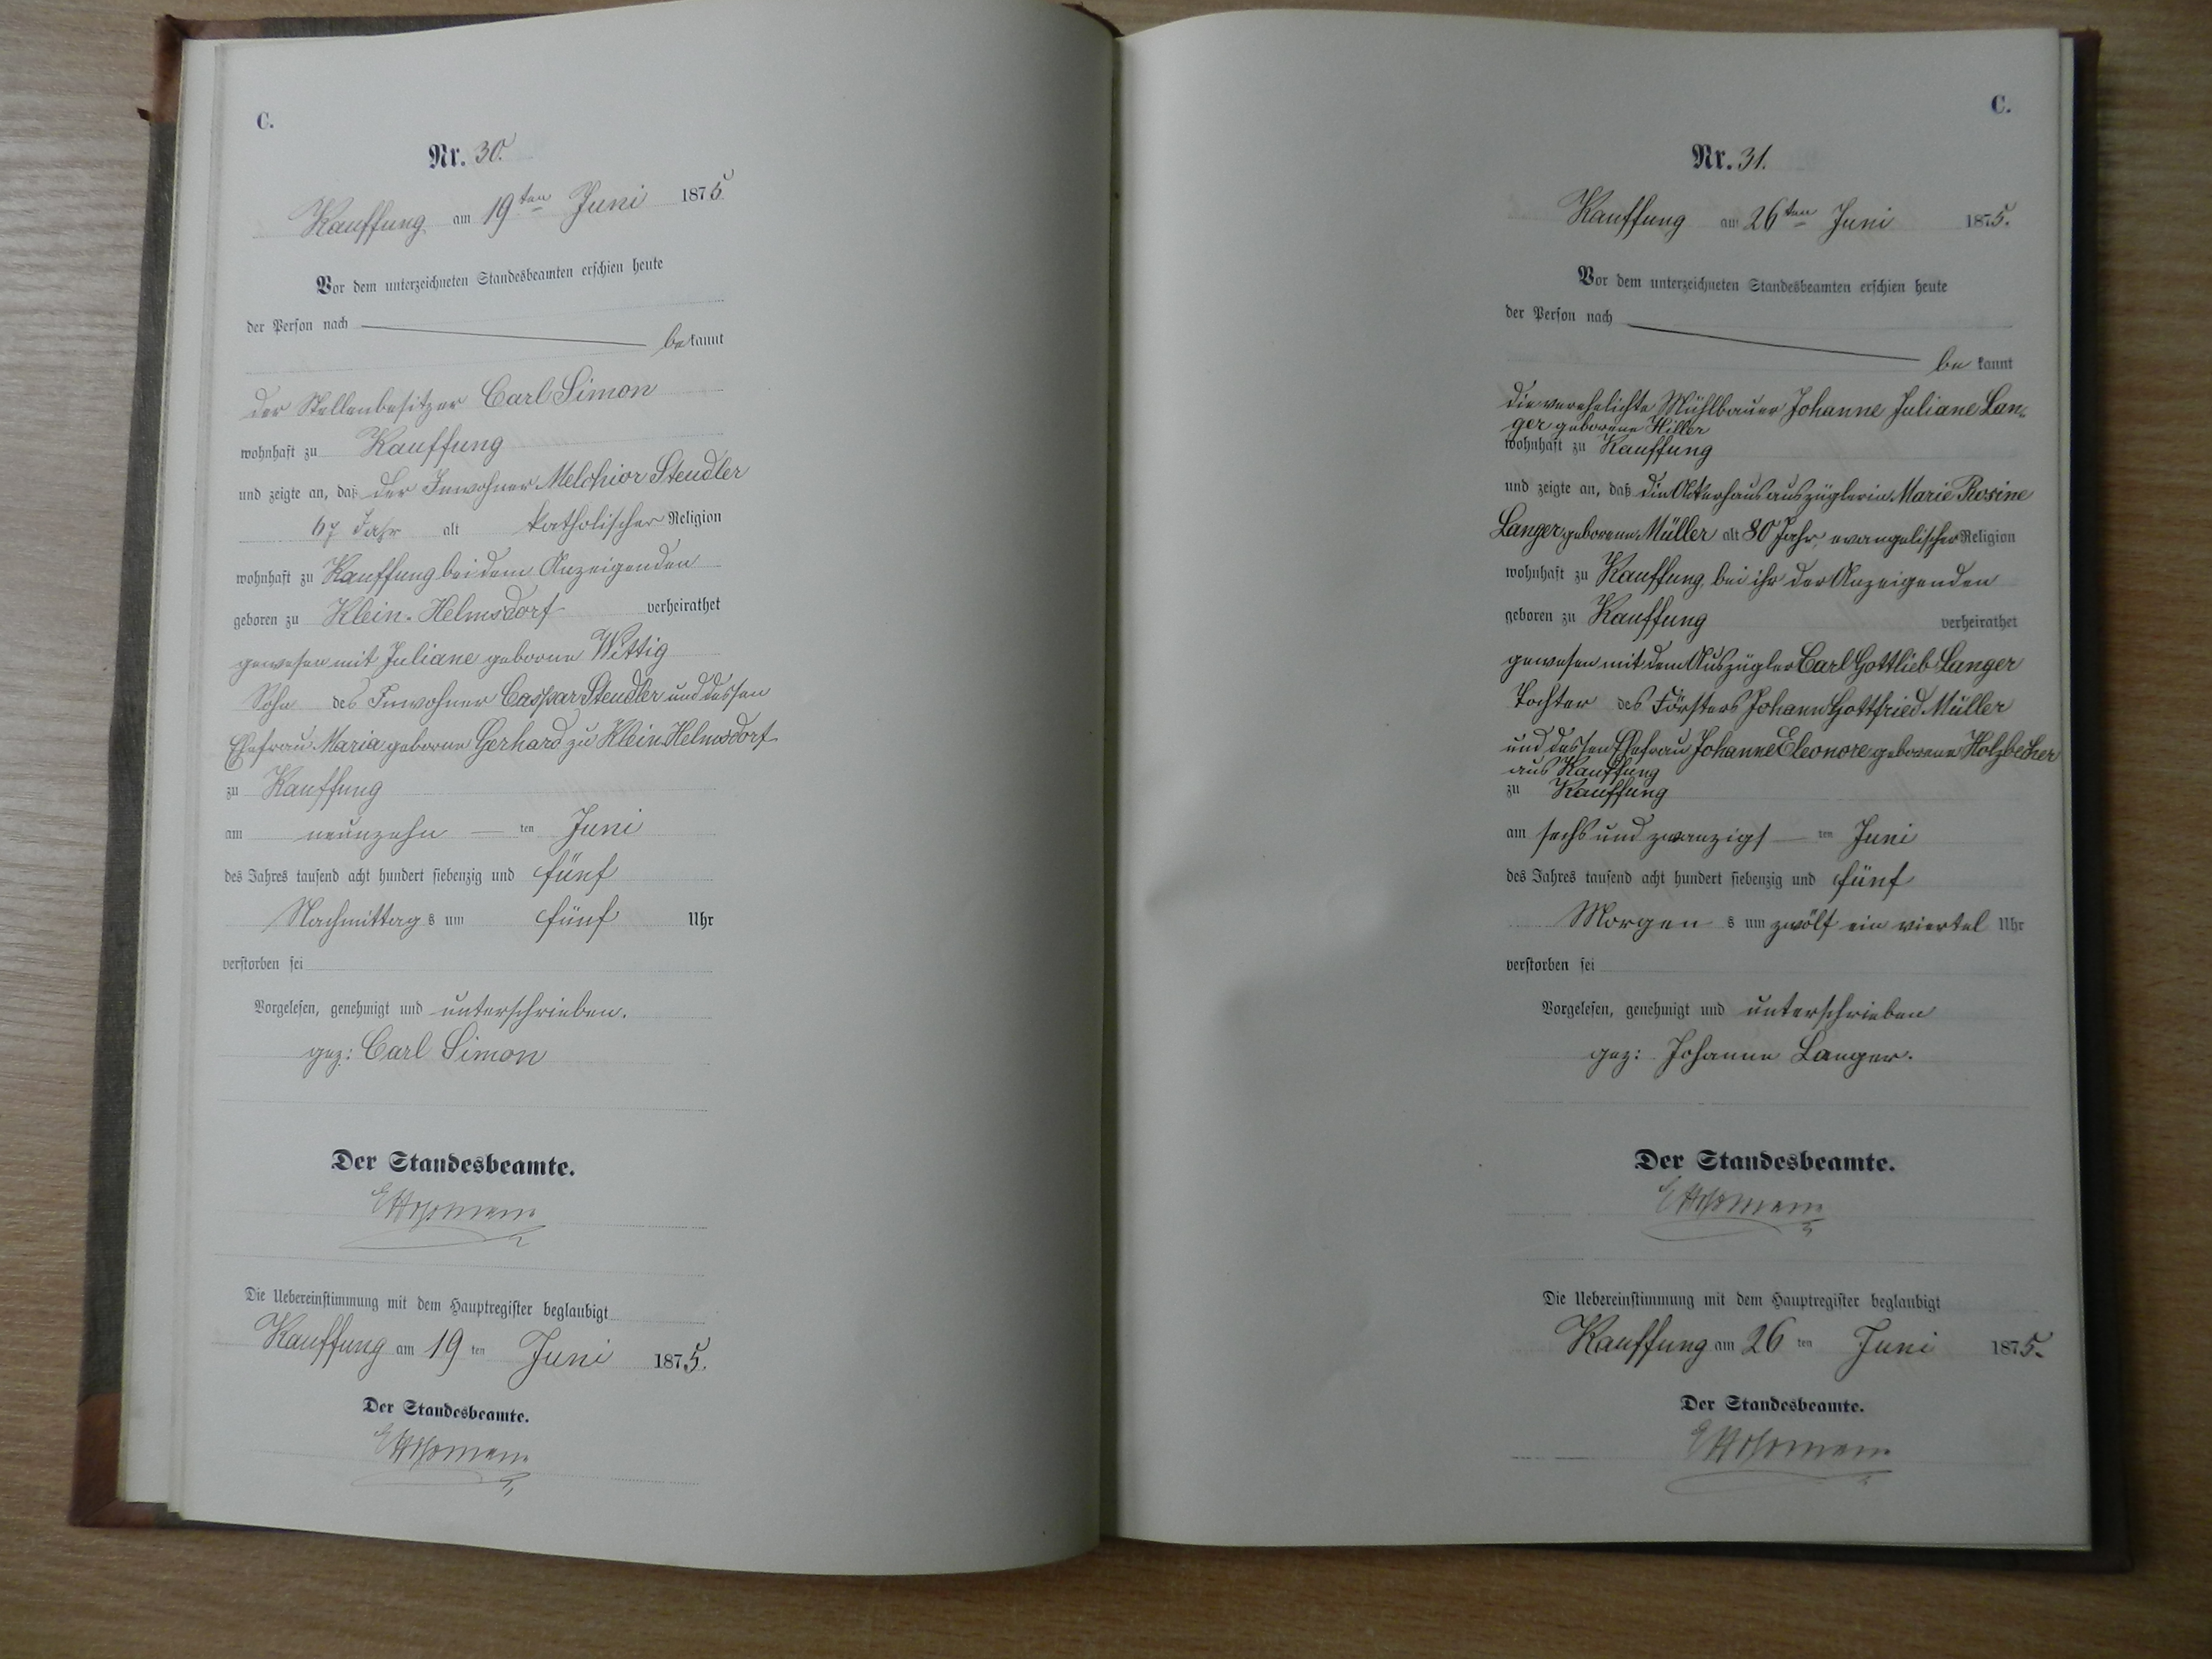 C.
Nr. 30.
Kauffung am 19ten Juni 1875
Vor dem unterzeichneten Standesbeamten erschien heute
der Person nach
bekannt
der Stellenbesitzer Carl Simon
wohnhaft zu Kauffung
und zeigte an, daß der Inwohner Melchior Steudler
67 Jahr alt katholischer Religion
wohnhaft zu Kauffung bei dem Anzeigenden
geboren zu Klein-Helmsdorf verheirathet
gewesen mit Juliane geborne Wittig
Sohn des Inwohner Caspar Steudler und dessen
Ehefrau Maria geborne Gerhard zu Klein Helmsdorf
zu Kauffung
am neunzehn ten Juni
des Jahres tausend acht hundert siebenzig und fünf
Nachmittags um fünf Uhr
verstorben sei
Vorgelesen, genehmigt und unterschrieben.
gez: Carl Simon
Der Standesbeamte.
Die Uebereinstimmung mit dem Hauptregister beglaubigt
Kauffung am 19 ten Juni 1875.
Der Standesbeamte.
C.
Nr. 31.
Kauffung am 26ten Juni 1875.
Vor dem unterzeichneten Standesbeamten erschien heute
der Person nach
be kannt
die verehelichte Mühlbauer Johanne Juliane Lan-
ger geborene Hiller
wohnhaft zu Kauffung
und zeigte an, daß die Ackerhausauszüglerin Marie Rosine
Langer geborene Müller alt 80 Jahr, evangelischer Religion
wohnhaft zu Kauffung, bei ihr der Anzeigenden
geboren zu Kauffung verheirathet
gewesen mit dem Auszügler Carl Gottlieb Langer
Tochter des Försters Johann Gottfried Müller
und dessen Ehefrau Johanne Eleonore geborene Holzbecher
aus Kauffung
zu Kauffung
am sechs und zwanzigs ten Juni
des Jahres tausend acht hundert siebenzig und fünf
Morgen s um zwölf ein viertel Uhr
verstorben sei
Vorgelesen, genehmigt und unterschrieben
gez: Johanne Langer.
Der Standesbeamte.
Die Uebereinstimmung mit dem Hauptregister beglaubigt
Kauffung am 26 ten Juni 1875.
Der Standesbeamte.